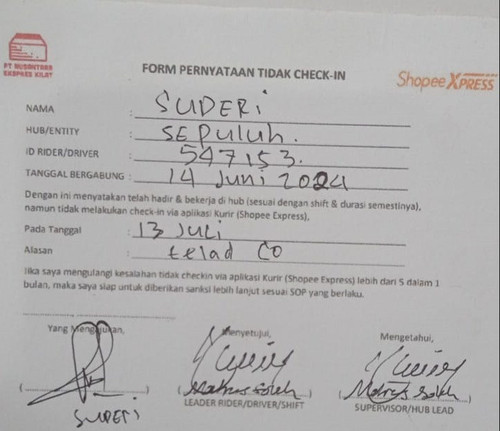 PT NUSANTARA
EKSPRES KILAT
FORM PERNYATAAN TIDAK CHECK-IN
Shopee XPRESS
NAMA : SUDERI
HUB/ENTITY : SEPULUH.
ID RIDER/DRIVER : 547153.
TANGGAL BERGABUNG : 14 Juni 2024
Dengan ini menyatakan telah hadir & bekerja di hub (sesuai dengan shift & durasi semestinya),
namun tidak melakukan check-in via aplikasi Kurir (Shopee Express),
Pada Tanggal : 13 Juli
Alasan : telad CO
Jika saya mengulangi kesalahan tidak checkin via aplikasi Kurir (Shopee Express) lebih dari 5 dalam 1
bulan, maka saya siap untuk diberikan sanksi lebih lanjut sesuai SOP yang berlaku.
Yang Mengajukan, Menyetujui, Mengetahui,
SUDERI
LEADER RIDER/DRIVER/SHIFT
SUPERVISOR/HUB LEAD